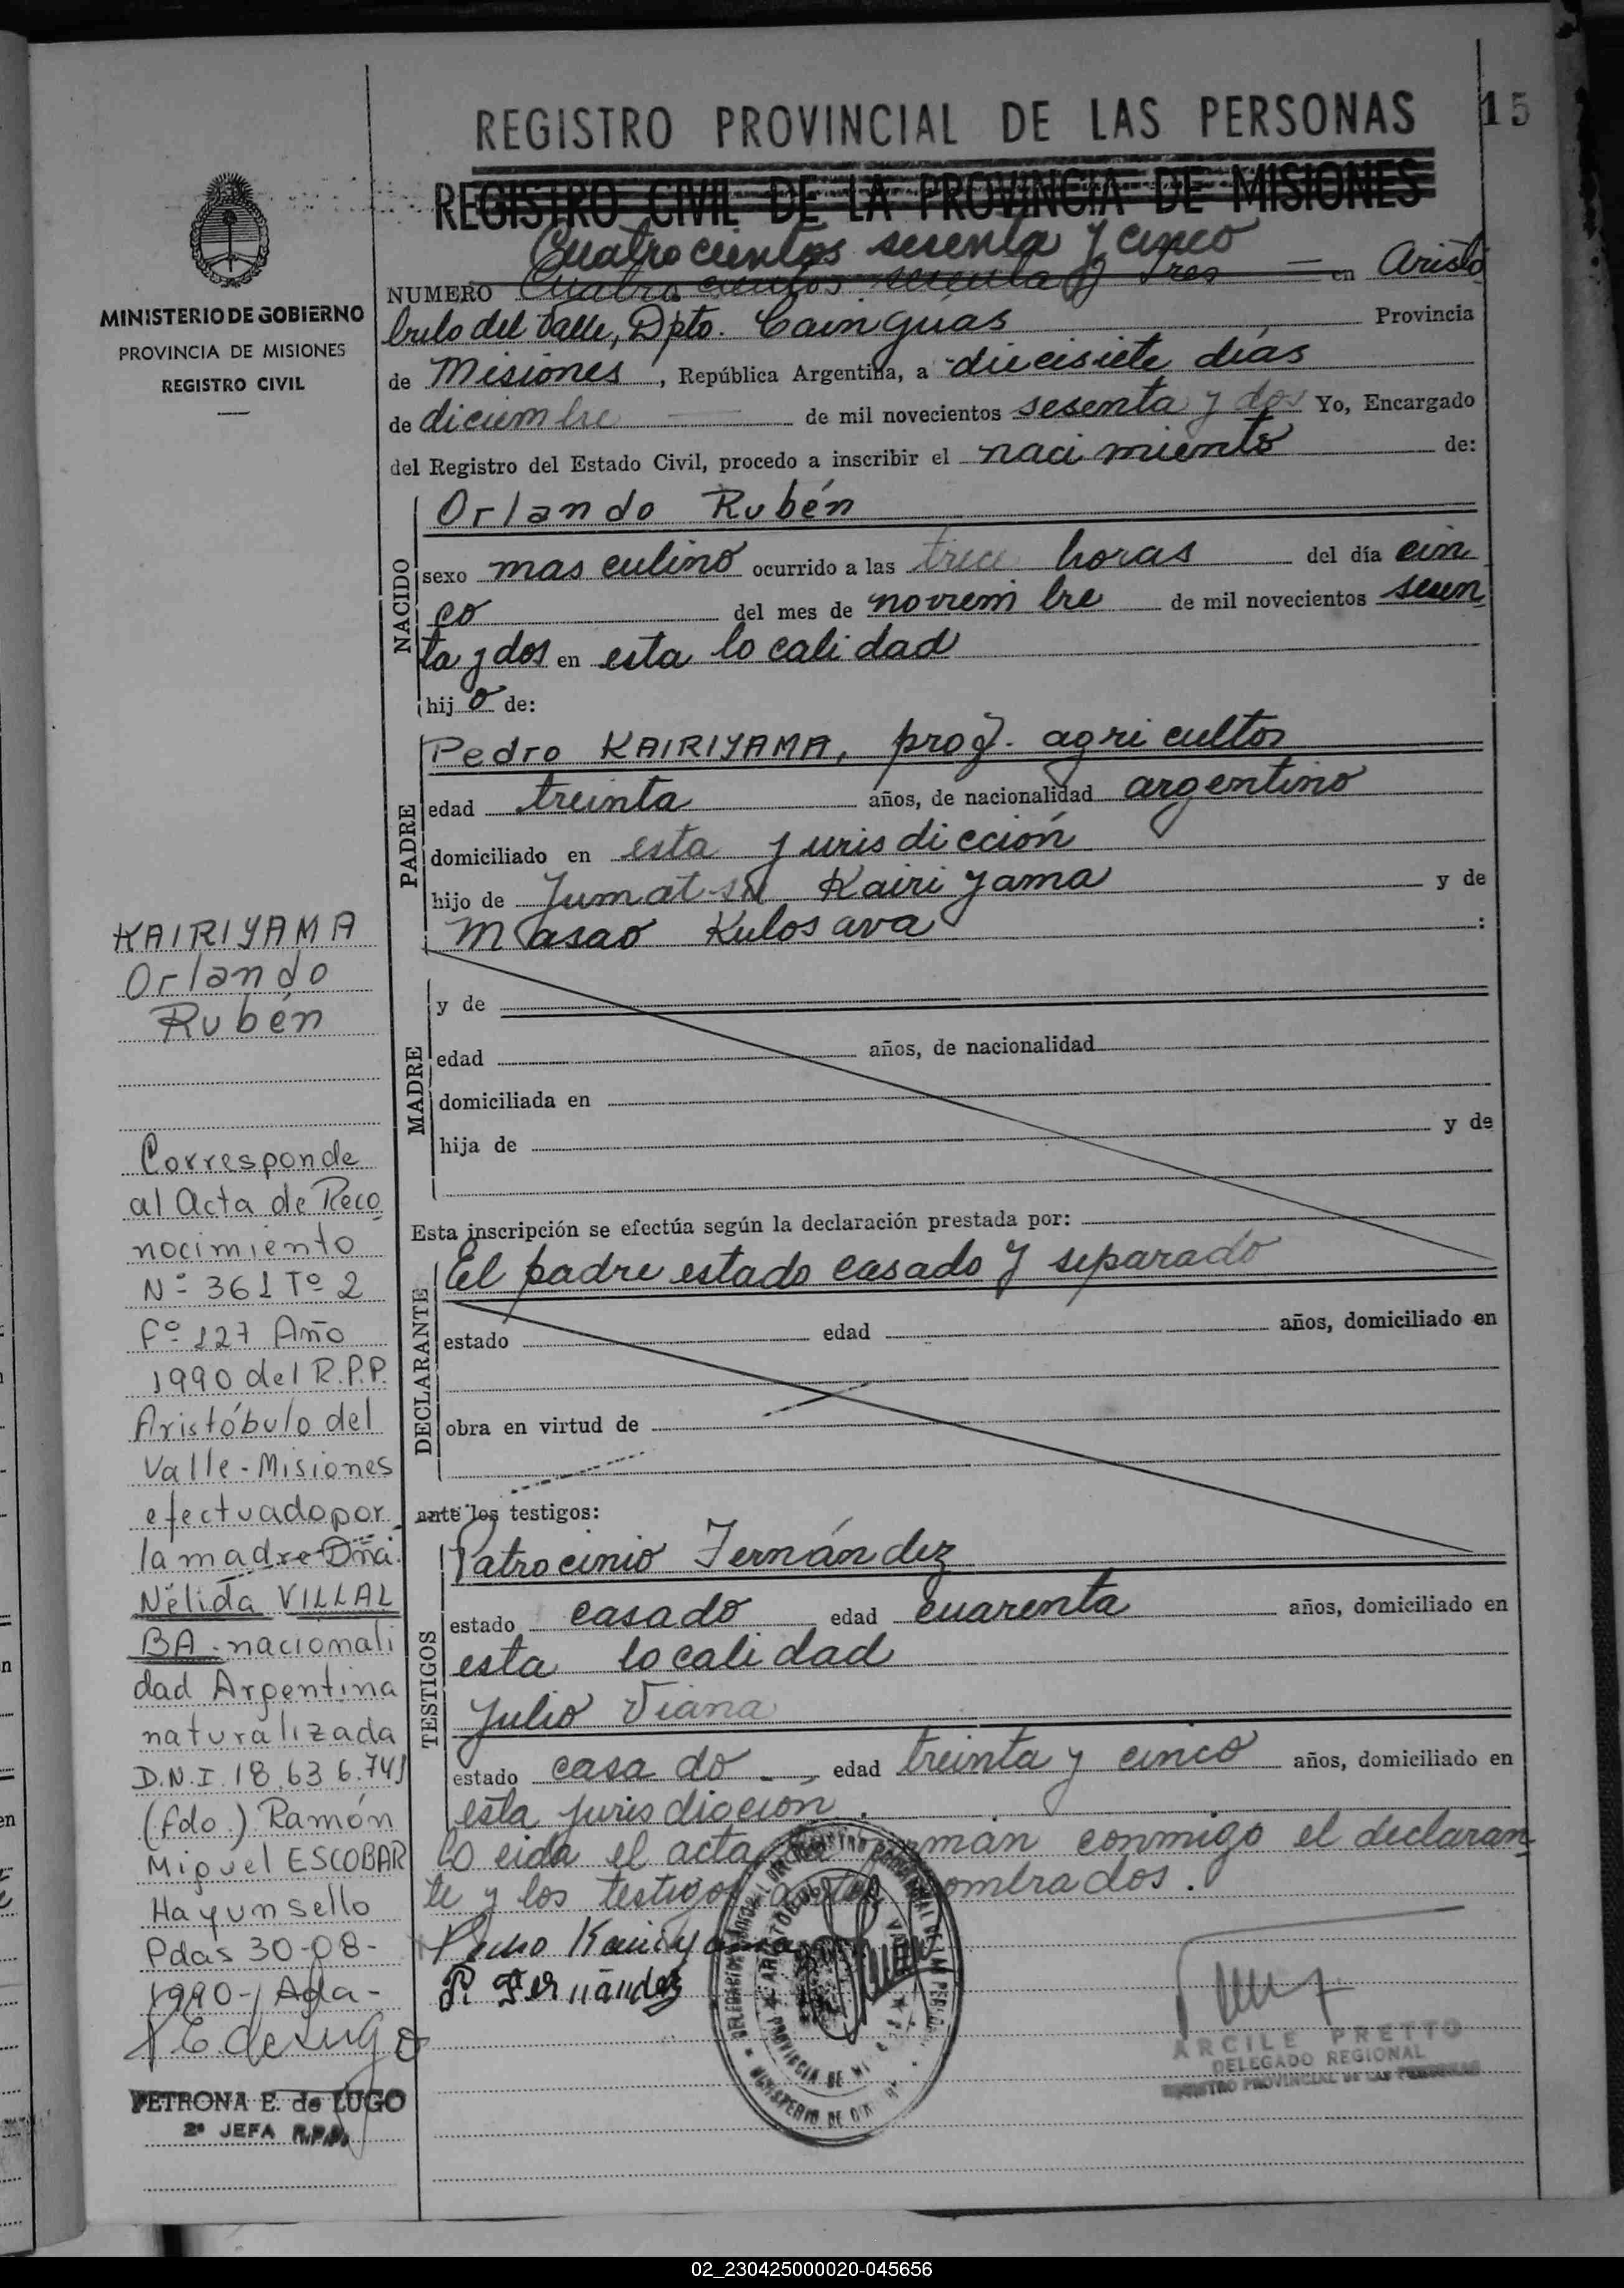 15
REGISTRO PROVINCIAL DE LAS PERSONAS
REGISTRO CIVIL DE LA PROVINCIA DE MISIONES
MINISTERIO DE GOBIERNO
PROVINCIA DE MISIONES
REGISTRO CIVIL
Cuatrocientos sesenta y cinco
NUMERO Cuatro cientos sesenta y tres en Aristó
bulo del Valle, Dpto. Cainguás Provincia
de Misiones, República Argentina, a diecisiete días
de diciembre de mil novecientos sesenta y dos Yo, Encargado
del Registro del Estado Civil, procedo a inscribir el nacimiento de:
NACIDO
Orlando Rubén
sexo masculino ocurrido a las trece horas del día cin
co del mes de noviembre de mil novecientos sesen
ta y dos en esta localidad
hijo de:
PADRE
Pedro KAIRIYAMA, prof. agricultor
edad treinta años, de nacionalidad argentino
domiciliado en esta jurisdicción
hijo de Jumatsu Kairiyama y de
Masao Kulosava :
MADRE
y de
edad años, de nacionalidad
domiciliada en
hija de y de
Esta inscripción se efectúa según la declaración prestada por:
DECLARANTE
El padre estado casado y separado
estado edad años, domiciliado en
obra en virtud de
ante los testigos:
TESTIGOS
Patrocinio Fernández
estado casado edad cuarenta años, domiciliado en
esta localidad
Julio Viana
estado casado edad treinta y cinco años, domiciliado en
esta jurisdiccion.
Leida el acta la firman conmigo el declaran
te y los testigos antes nombrados.
Pedro Kairiyama
P. Fernández
ARCILE PRETTO
DELEGADO REGIONAL
REGISTRO PROVINCIAL DE LAS PERSONAS
KAIRIYAMA
Orlando
Rubén
Corresponde
al Acta de Reco
nocimiento
Nº 361 Tº 2
Fº 127 Año
1990 del R.P.P.
Aristóbulo del
Valle-Misiones
efectuado por
la madre Dña.
Nélida VILLAL
BA-nacionali
dad Argentina
naturalizada
D.N.I. 18.636.741
(fdo.) Ramón
Miguel ESCOBAR
Hay un sello
Pdas 30-08-
1990-
P E de Lugo
PETRONA E. de LUGO
2ª JEFA R.P.P.
02_230425000020-045656